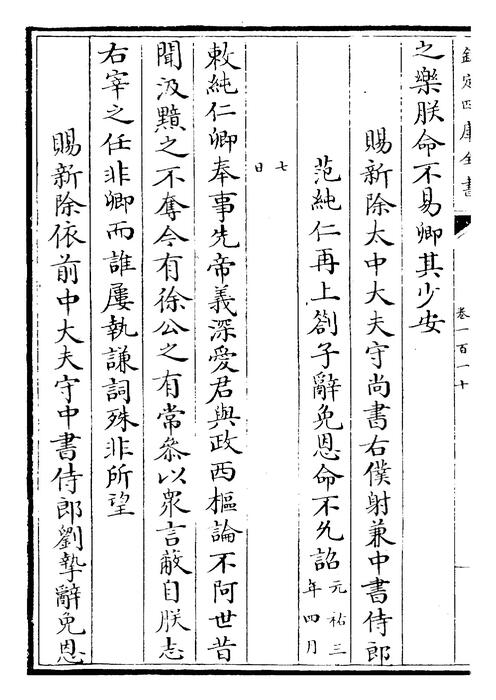 欽定四庫全書
卷一百一十
之樂朕命不易卿其少安
賜新除太中大夫守尚書右僕射兼中書侍郎
范純仁再上劄子辭免恩命不允詔元祐三年四月
七日
敕純仁卿奉事先帝義深愛君與政西樞論不阿世昔
聞汲黯之不奪今有徐公之有常叅以衆言蔽自朕志
右宰之任非卿而誰屢執謙詞殊非所望
賜新除依前中大夫守中書侍郎劉摯辭免恩